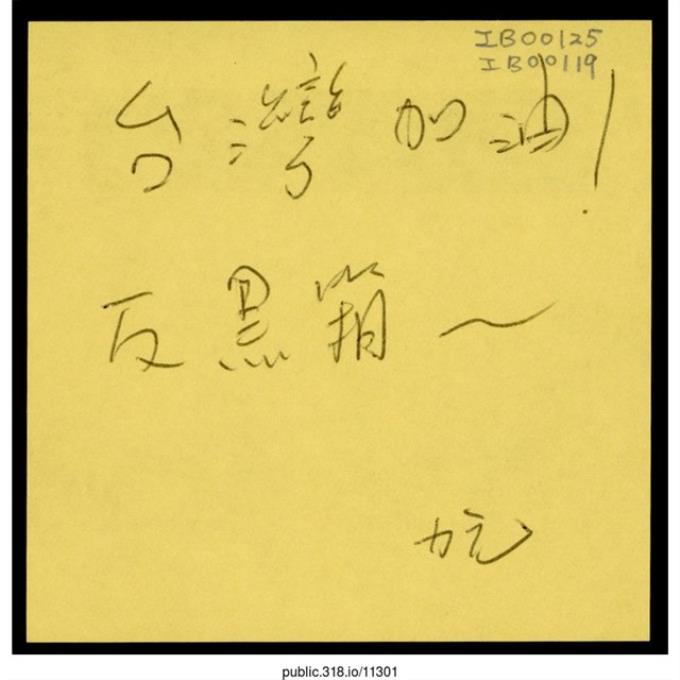 IB00125
IB00119
台灣加油!
反黑箱~
public.318.io/11301